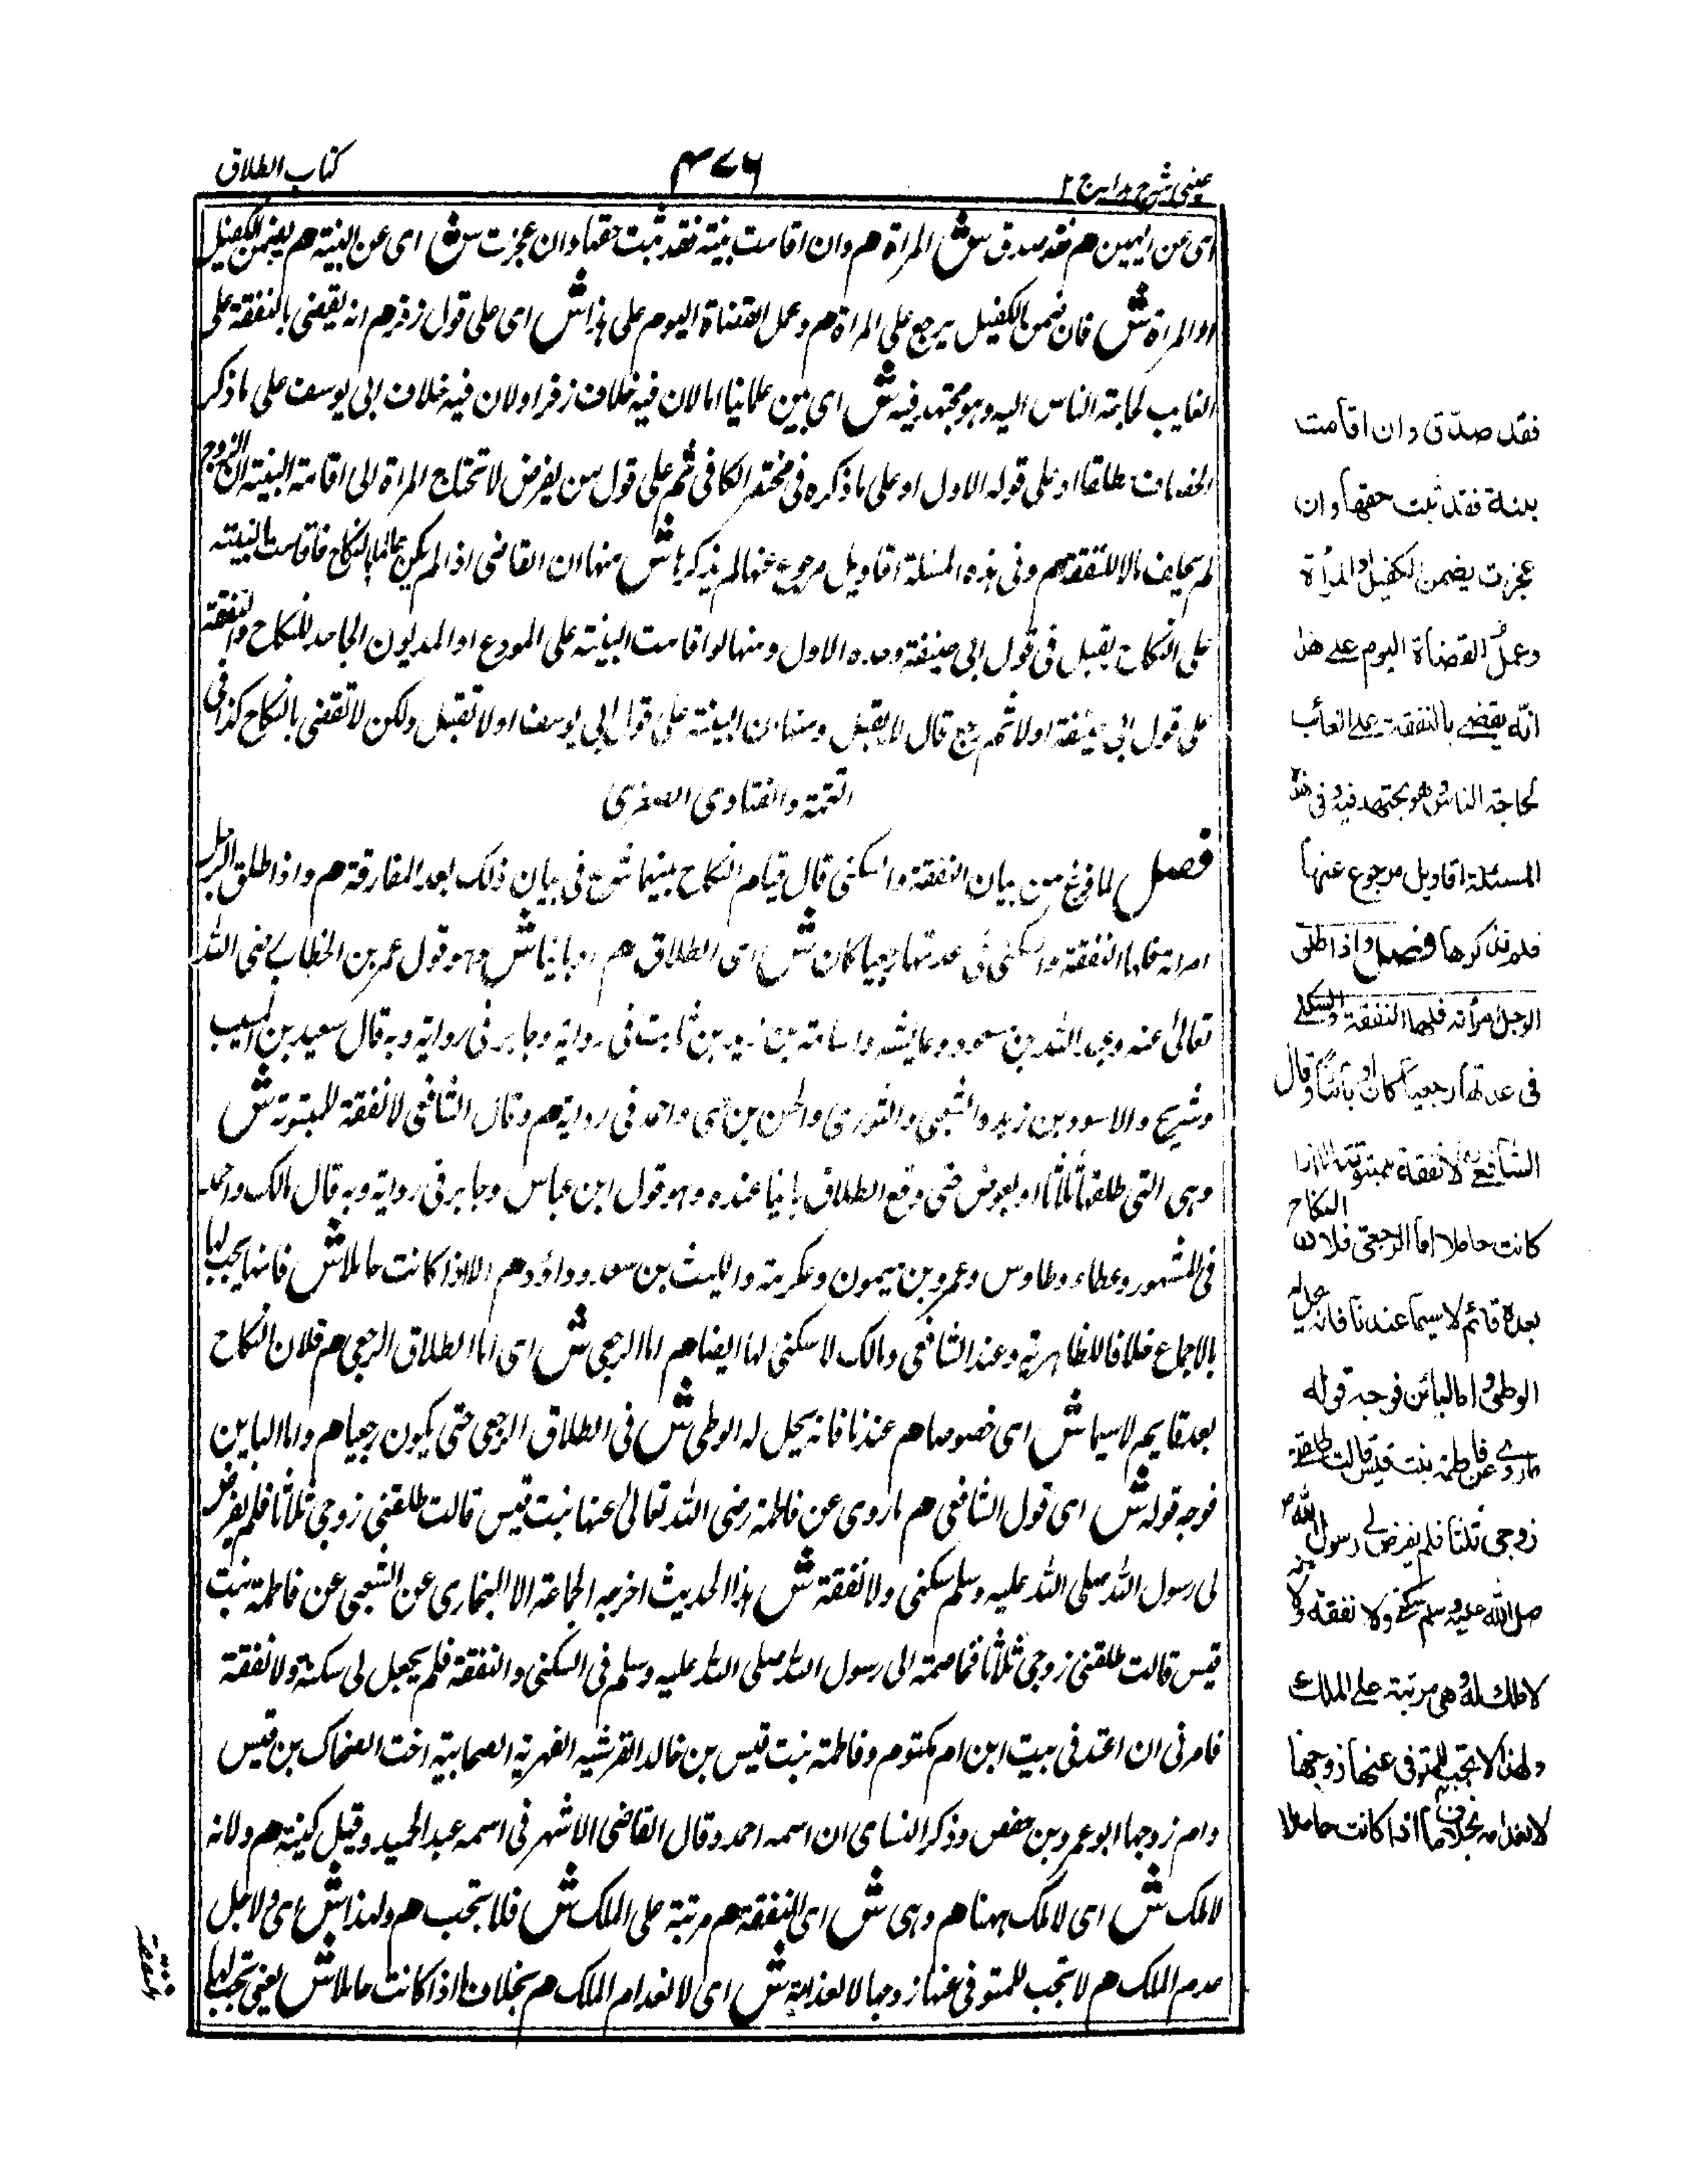 كتاب الطلاق
٤٧٦
عينى شرح هدايه ج ٢
اى عن اليمين هم فقد صدق ش المرأة هم وان اقامت بينة فقد ثبت حقها وان عجزت ش اى عن البينة هم يضمن الكفيل
او المراة ش فان ضمن الكفيل يرجع على المراة هم وعمل القضاة اليوم على هذا ش اى على قول زفر هم انه يقضى بالنفقة على
الغايب لحاجة الناس اليه وهو مجتهد فيه ش اى بين علمائنا امالان فيه خلاف زفر اولان فيه خلاف ابى يوسف على ما ذكر
الخصاف مطلقا او على قوله الاول او على ما ذكره فى مختصر الكافى ثم على قول من يفرض لا تحتاج المراة الى اقامة البينة ان الزوج
لم يخلف مالا للنفقة هم وفى هذه المسئلة اقاويل مرجوع عنها لم يذكرها ش منها ان القاضى اذا لم يكن عالما بالنكاح فاقامت البينة
على النكاح يقبل فى قول ابى حنيفة وحده الاول ومنها لو اقامت البينة على المودع او المديون الجاحد للنكاح والنفقة
على قول ابى حنيفة اولا ثم رجع قال لا يقبل ومنها ان البينة على قول ابى يوسف اولا تقبل ولكن لا تقضى بالنكاح كذا فى
التتمة والفتاوى الصغرى
فصل لما فرغ من بيان النفقة والسكنى قال قيام النكاح بينهما شرع فى بيان ذلك بعد المفارقة هم واذا طلق الرجل
امراته فلها النفقة والسكنى فى عدتها رجعيا كان ش اى الطلاق هم او باينا ش وهو قول عمر بن الخطاب رضى الله
تعالىٰ عنه وعبد الله بن مسعود وعايشه واسامة بن زيد بن ثابت فى رواية وجابر فى رواية وبه قال سعيد بن المسيب
وشريح والاسود بن زيد والشعبى والثورى والحسن بن حى واحمد فى رواية هم وقال الشافعى لا نفقة للمبتوتة ش
وهى التى طلقها ثلاثا او بعوض حتى وقع الطلاق باينا عنده وهو قول ابن عباس وجابر فى رواية وبه قال مالك واحمد
فى المشهور وعطاء وطاوس وعمرو بن ميمون وعكرمة والليث بن سعد وداؤد هم الا اذا كانت حاملا ش فانها يجب لها
بالاجماع خلافا للظاهرية وعند الشافعى ومالك لا سكنى لها ايضا هم اما الرجعى ش اى اما الطلاق الرجعى هم فلان النكاح
بعد قايم لا سيما ش اى خصوصا هم عندنا فانه يحل له الوطى ش فى الطلاق الرجعى حتى يكون رجعيا هم واما الباين
فوجه قوله ش اى قول الشافعى هم ماروى عن فاطمة رضى الله تعالىٰ عنها بنت قيس قالت طلقنى زوجى ثلاثا فلم يفرض
لى رسول الله صلى الله عليه وسلم سكنى ولا نفقة ش هذا الحديث اخرجه الجماعة الا البخارى عن الشعبى عن فاطمة بنت
قيس قالت طلقنى زوجى ثلاثا فخاصمته الى رسول الله صلى الله عليه وسلم فى السكنى والنفقة فلم يجعل لى سكنة ولا نفقة
فامرنى ان اعتد فى بيت ابن ام مكتوم وفاطمة بنت قيس بن خالد القرشيه الفهرية الصحابيته اخت الضحاك بن قيس
واسم زوجها ابو عمرو بن حفص وذكر النساى ان اسمه احمد وقال القاضى الاشهر فى اسمه عبد الحميد وقيل كنيته هم ولانه
لا ملك ش اى لا ملك ههنا هم وهى ش اى النفقة هم مرتبة على الملك ش فلا تجب هم ولهذا ش اى ولاجل
عدم الملك هم لا تجب للمتوفى عنها زوجها لانعدامه ش اى لانعدام الملك هم بخلاف ما اذا كانت حاملا ش يعنى تجب لها
فقد صدّق وان اقامت
بينة فقد ثبت حقها وان
عجزت يضمن الكفيل او المرأة
وعمل القضاة اليوم على هذا
انه يقضى بالنفقة على الغائب
لحاجة الناس وهو مجتهد فيه وفى هذه
المسئلة اقاويل مرجوع عنها
فلم نذكرها فصل واذا طلق
الرجل امرأته فلها النفقة والسكنى
فى عدتها رجعياً كان او بائنا وقال
الشافعى لا نفقة للمبتوتة الا اذا
كانت حاملا اما الرجعى فلان النكاح
بعده قائم لا سيما عندنا فانه يحل له
الوطى واما البائن فوجه قوله
ماروى عن فاطمة بنت قيس قالت طلقنى
زوجى ثلثا فلم يفرض لى رسول الله
صلى الله عليه وسلم سكنى ولا نفقة ولانه
لا ملك له وهى مرتبة على الملك
ولهذا لا تجب للمتوفى عنها زوجها
لانعدامه بخلاف ما اذا كانت حاملا